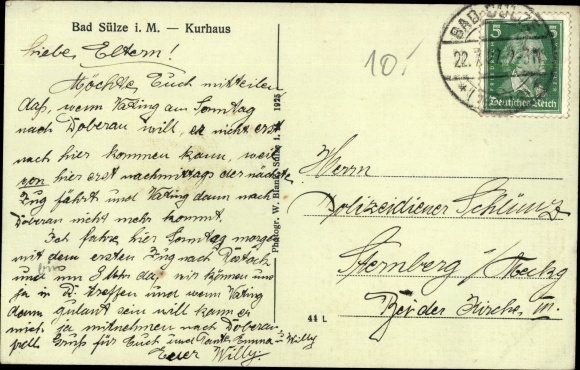 Bad Sülze i. M. — Kurhaus
Liebe Eltern!
Möchte Euch mitteilen
daß, wenn Vating am Sonntag
nach Doberan will, er nicht erst
nach hier kommen kann, weil
von hier erst nachmittags der nächste
Zug fährt und Vating dann nach
Doberan nicht mehr kommt.
Ich fahre hier Sonntag morgen
mit dem ersten Zug nach Rostock
und um 8 Uhr da, wir können uns
ja in D. treffen und wenn Vating
dann gulant sein will kann er
mich ja mitnehmen nach Doberan
Gruß für Euch und Tante Emma u. Willy
Euer Willy.
Photogr. W. Blanck, Sülze i. M. 1925
44 L
10.-
BAD SÜLZE
22.7.
5 5
Deutsches Reich
Herrn
Polizeidiener Schlünz
Sternberg i/Meckg
Bei der Kirche III.